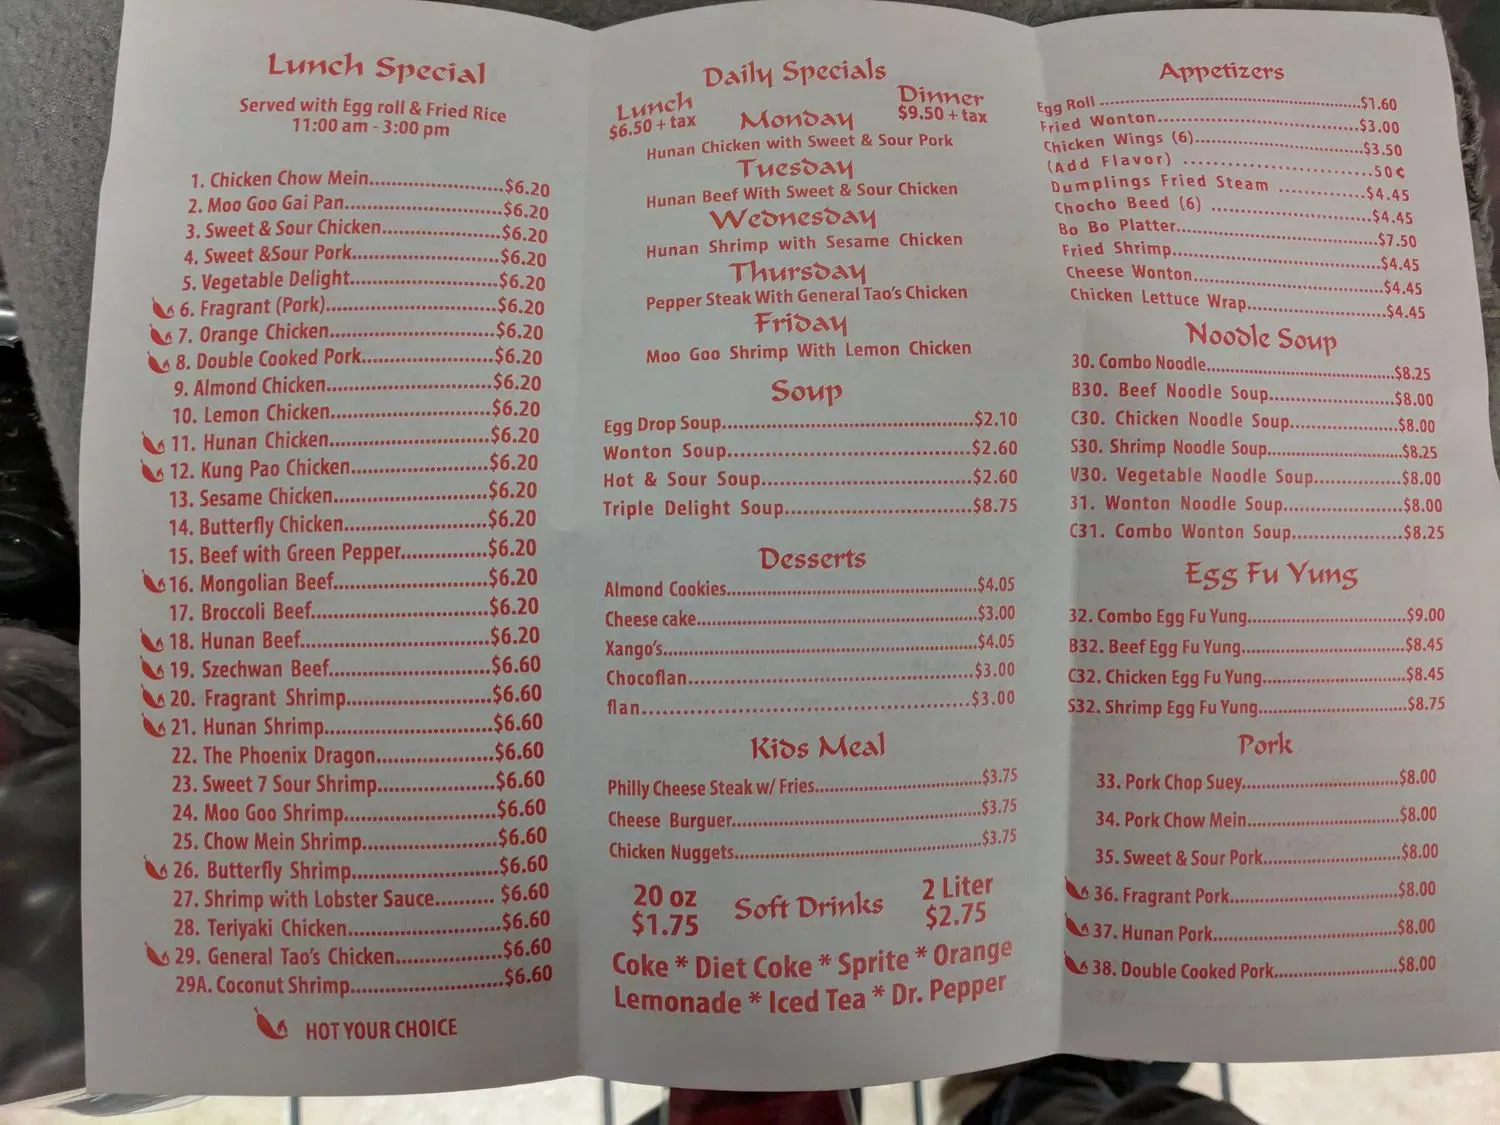 Lunch Special
Served with Egg roll & Fried Rice
11:00 am - 3:00 pm
1. Chicken Chow Mein........................$6.20
2. Moo Goo Gai Pan............................$6.20
3. Sweet & Sour Chicken.....................$6.20
4. Sweet &Sour Pork...........................$6.20
5. Vegetable Delight...........................$6.20
6. Fragrant (Pork)................................$6.20
7. Orange Chicken...............................$6.20
8. Double Cooked Pork........................$6.20
9. Almond Chicken...............................$6.20
10. Lemon Chicken..............................$6.20
11. Hunan Chicken..............................$6.20
12. Kung Pao Chicken.........................$6.20
13. Sesame Chicken............................$6.20
14. Butterfly Chicken..........................$6.20
15. Beef with Green Pepper................$6.20
16. Mongolian Beef............................$6.20
17. Broccoli Beef.................................$6.20
18. Hunan Beef...................................$6.20
19. Szechwan Beef..............................$6.60
20. Fragrant Shrimp...........................$6.60
21. Hunan Shrimp...............................$6.60
22. The Phoenix Dragon......................$6.60
23. Sweet 7 Sour Shrimp.....................$6.60
24. Moo Goo Shrimp...........................$6.60
25. Chow Mein Shrimp........................$6.60
26. Butterfly Shrimp...........................$6.60
27. Shrimp with Lobster Sauce.......... $6.60
28. Teriyaki Chicken...........................$6.60
29. General Tao's Chicken...................$6.60
29A. Coconut Shrimp.........................$6.60
HOT YOUR CHOICE
Daily Specials
Lunch Dinner
$6.50 + tax $9.50 + tax
Monday
Hunan Chicken with Sweet & Sour Pork
Tuesday
Hunan Beef With Sweet & Sour Chicken
Wednesday
Hunan Shrimp with Sesame Chicken
Thursday
Pepper Steak With General Tao's Chicken
Friday
Moo Goo Shrimp With Lemon Chicken
Soup
Egg Drop Soup..........................................$2.10
Wonton Soup..........................................$2.60
Hot & Sour Soup....................................$2.60
Triple Delight Soup................................$8.75
Desserts
Almond Cookies..........................................$4.05
Cheese cake...............................................$3.00
Xango's.....................................................$4.05
Chocoflan.................................................$3.00
flan...........................................$3.00
Kids Meal
Philly Cheese Steak w/ Fries............................$3.75
Cheese Burguer..........................................$3.75
Chicken Nuggets..........................................$3.75
20 oz Soft Drinks 2 Liter
$1.75 $2.75
Coke * Diet Coke * Sprite * Orange
Lemonade * Iced Tea * Dr. Pepper
Appetizers
Egg Roll ..................................................$1.60
Fried Wonton.....................................$3.00
Chicken Wings (6)...............................$3.50
(Add Flavor) ..............................50¢
Dumplings Fried Steam ................$4.45
Chocho Beed (6) ..............................$4.45
Bo Bo Platter.....................................$7.50
Fried Shrimp.......................................$4.45
Cheese Wonton...................................$4.45
Chicken Lettuce Wrap.........................$4.45
Noodle Soup
30. Combo Noodle......................................$8.25
B30. Beef Noodle Soup........................$8.00
C30. Chicken Noodle Soup....................$8.00
S30. Shrimp Noodle Soup.........................$8.25
V30. Vegetable Noodle Soup................$8.00
31. Wonton Noodle Soup......................$8.00
C31. Combo Wonton Soup.....................$8.25
Egg Fu Yung
32. Combo Egg Fu Yung..............................$9.00
B32. Beef Egg Fu Yung...............................$8.45
C32. Chicken Egg Fu Yung..........................$8.45
S32. Shrimp Egg Fu Yung...........................$8.75
Pork
33. Pork Chop Suey.............................$8.00
34. Pork Chow Mein............................$8.00
35. Sweet & Sour Pork.........................$8.00
36. Fragrant Pork................................$8.00
37. Hunan Pork...................................$8.00
38. Double Cooked Pork......................$8.00